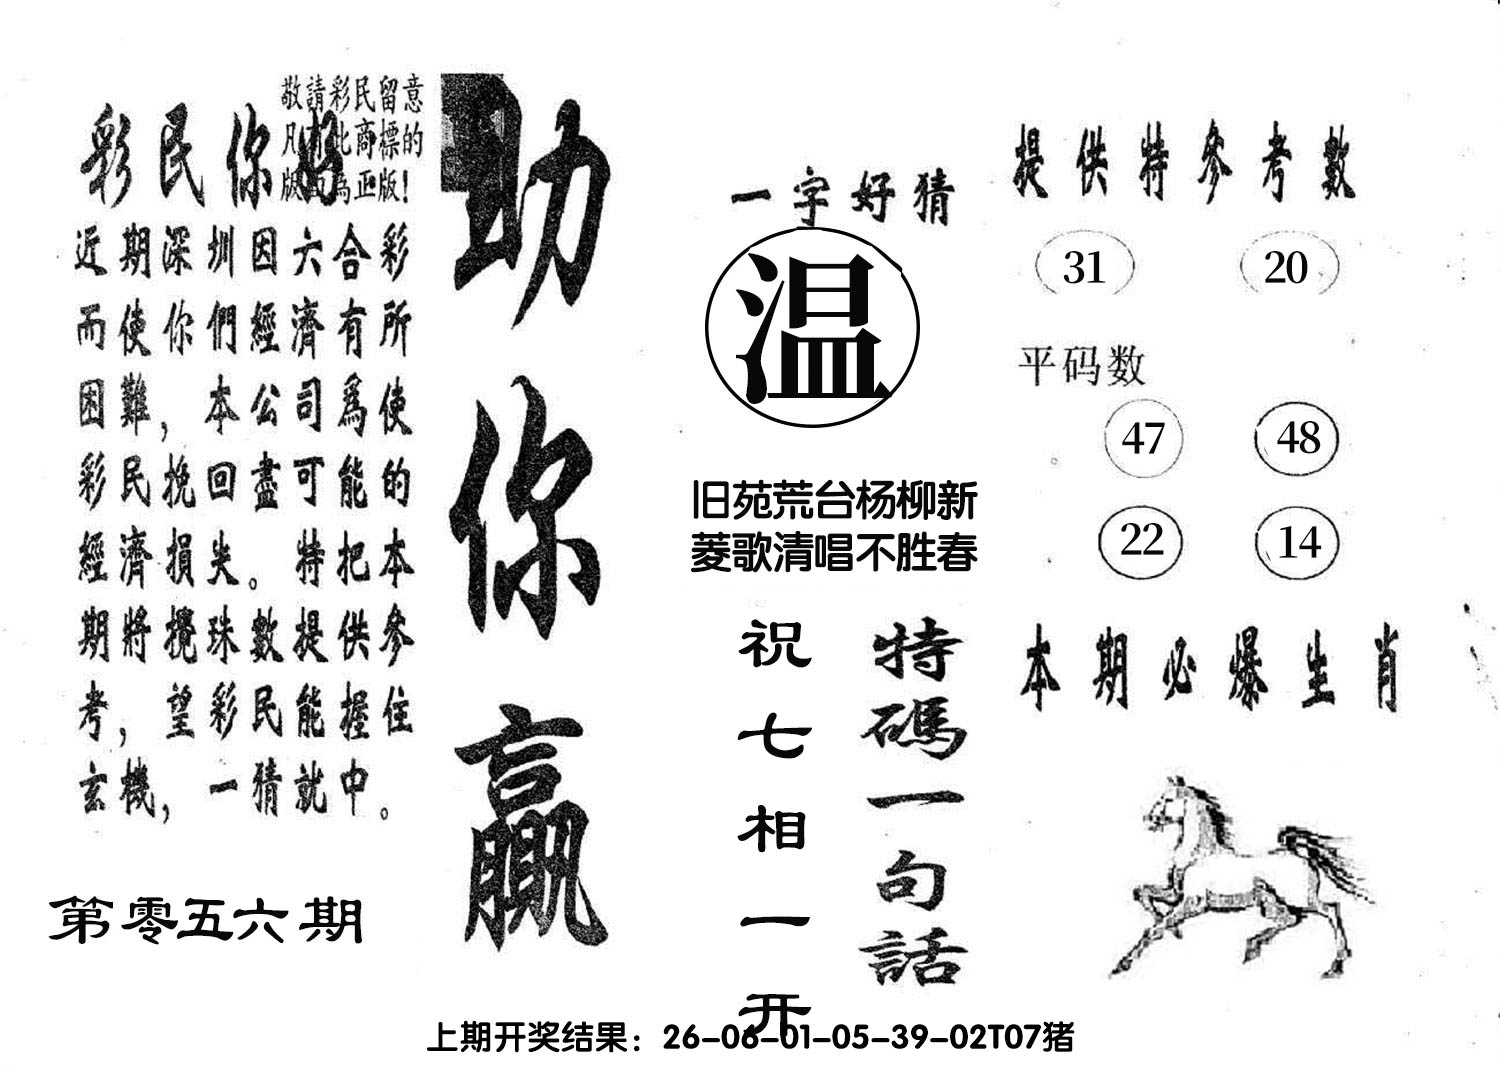 敬請彩民留意
凡有此商標的
版面為正版！
彩民你好
近期深圳因六合彩
而使你們經濟有所
困難，本公司爲使
彩民挽回盡可能的
經濟損失。特把本
期將攪珠數提供參
考，望彩民能握住
玄機，一猜就中。
第零五六期
助你贏
一字好猜
温
旧苑荒台杨柳新
菱歌清唱不胜春
特碼一句話
祝七相一开
提供特參考數
31 20
平码数
47 48
22 14
本期必爆生肖
上期开奖结果：26-06-01-05-39-02T07猪